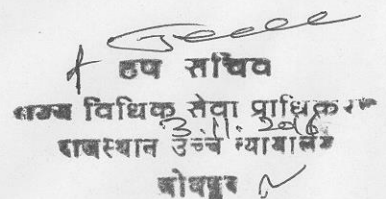 उप सचिव
राज्य विधिक सेवा प्राधिकरण
राजस्थान उच्च न्यायालय
जोधपुर